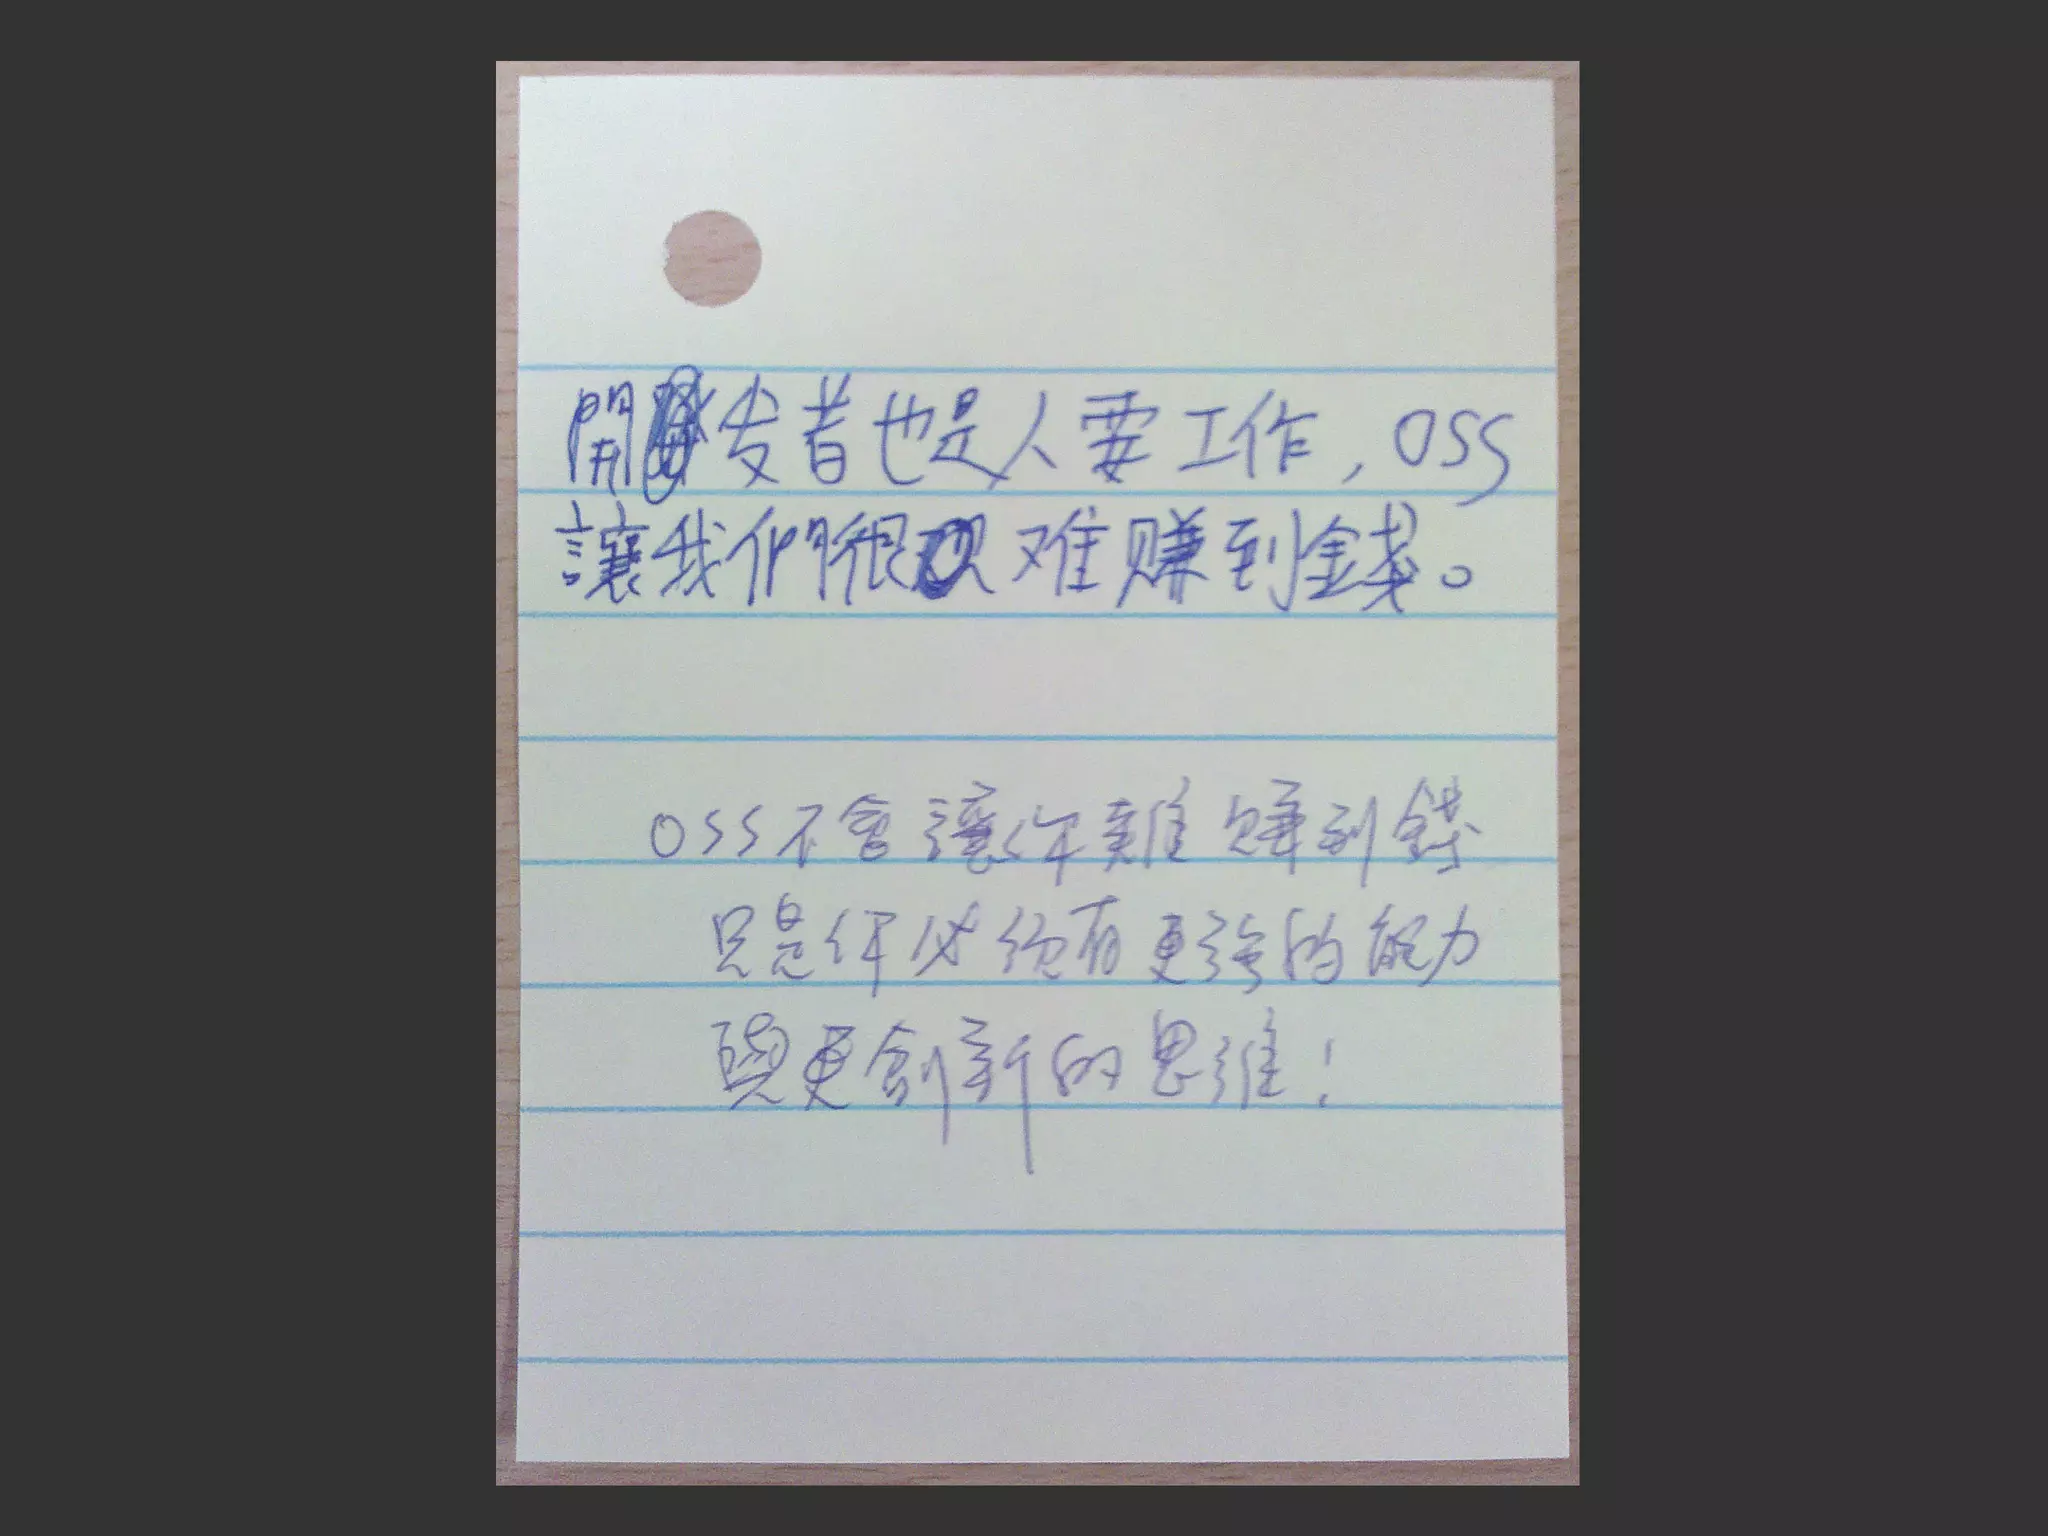 開发者也是人要工作，OSS
讓我們很难賺到錢。
OSS不會讓你難賺到錢
只是你必須有更強的能力
與更創新的思維！